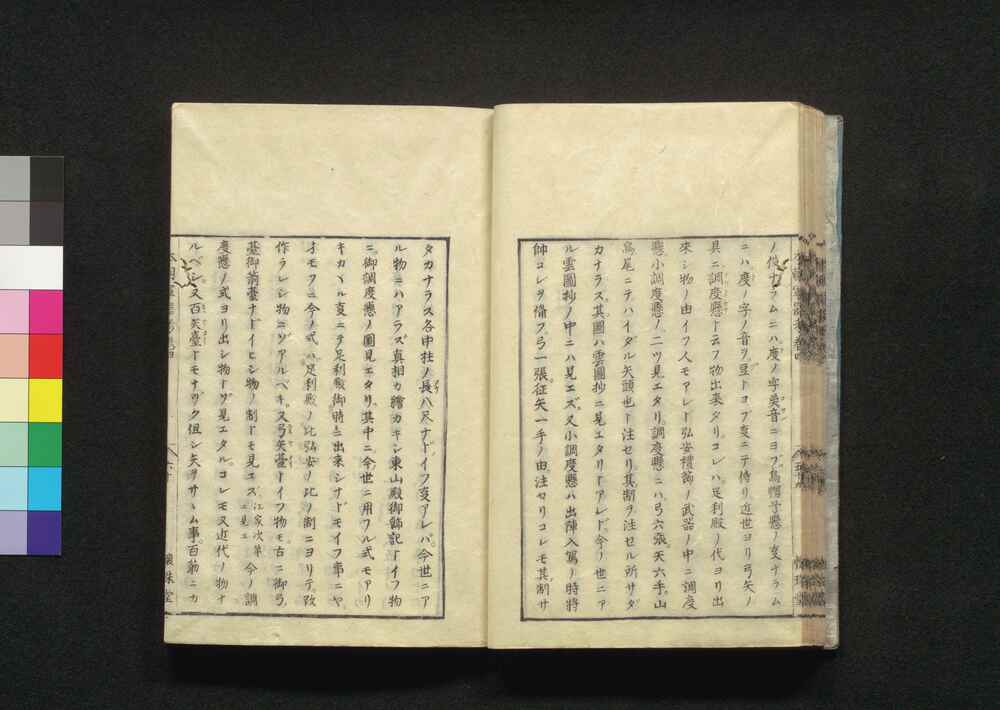 ノ儀ナラムニハ度ノ字英音ニヨブ烏帽子懸ノ変ナラム
ニハ度ノ字ノ音ヲ豆トヨブ変ニテ侍リ近世ヨリ弓矢ノ
具ニ調度懸ト云フ物出来タリコレハ足利殿ノ代ヨリ出
來シ物ノ由イフ人モアレト弘安禮節ノ武器ノ中ニ調度
懸小調度懸ノ二ツ見エタリ調度懸ニハ弓六張矢六手山
鳥尾ニテハイダル矢頭也ト注セリ其制ヲ注セル所サダ
カナラス其圖ハ雲圖抄ニ見エタリトアレド今ノ世ニア
ル雲圖抄ノ中ニハ見エズ又小調度懸ハ出陣入篤ノ時將
帥コレヲ備フ弓一張征矢一手ノ由注セリコレモ其制サ
タカナラス各中柱ノ長八尺ナドイフ変アレバ今世ニア
ル物ニハアラズ真相カ繪カキシ東山殿御飾記トイフ物
ニ御調度懸ノ圖見エタリ其中ニ今世ニ用フル式モアリ
キカヽル変ニテ足利殿御時ニ出来シナドモイフ事ニヤ
オモフニ今ノ式ハ足利殿ノ比弘安ノ比ノ制ニヨリテ改
作ラレシ物ニソアルベキ又弓矢臺トイフ物モ古ニ御弓
臺御箭臺ナドイヒシ物ノ制トモ見エズ江家次第ニ見エ今ノ調
度懸ノ式ヨリ出シ物トゾ見エタルコレモ又近代ノ物ナ
ルベシ又百矢臺トモナヅク但シ矢ヲサヽム事百筋ニカ